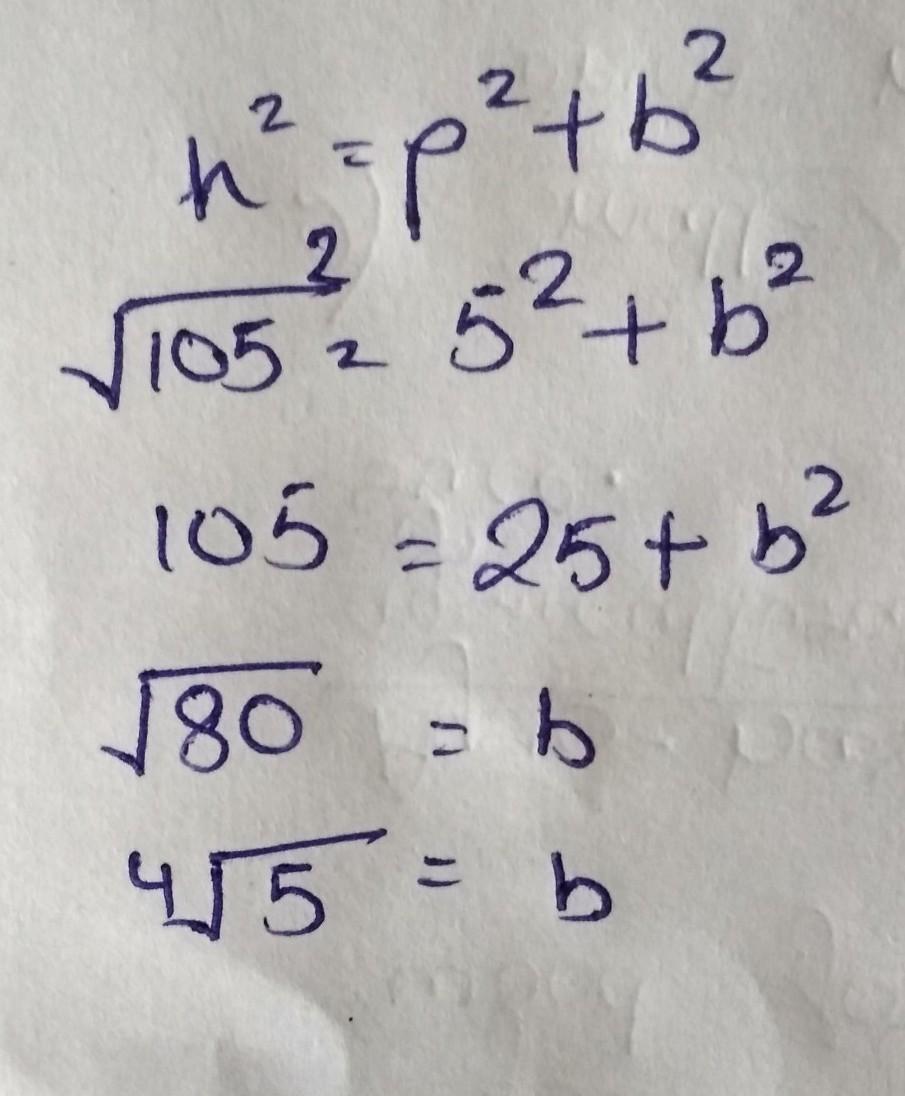 h² = p² + b²
√105² = 5² + b²
105 = 25 + b²
√80 = b
4√5 = b